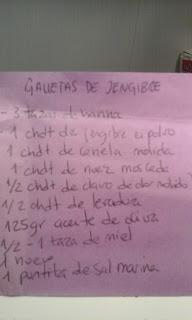 GALLETAS DE JENGIBRE
- 3 tazas de harina
- 1 chdt de jengibre en polvo
- 1 chdt de canela molida
1 chdt de nuez moscada
1/2 chdt de clavo de olor molido
1/2 chdt de levadura
125gr aceite de oliva
1/2 - 1 taza de miel
1 huevo
1 puntita de sal marina